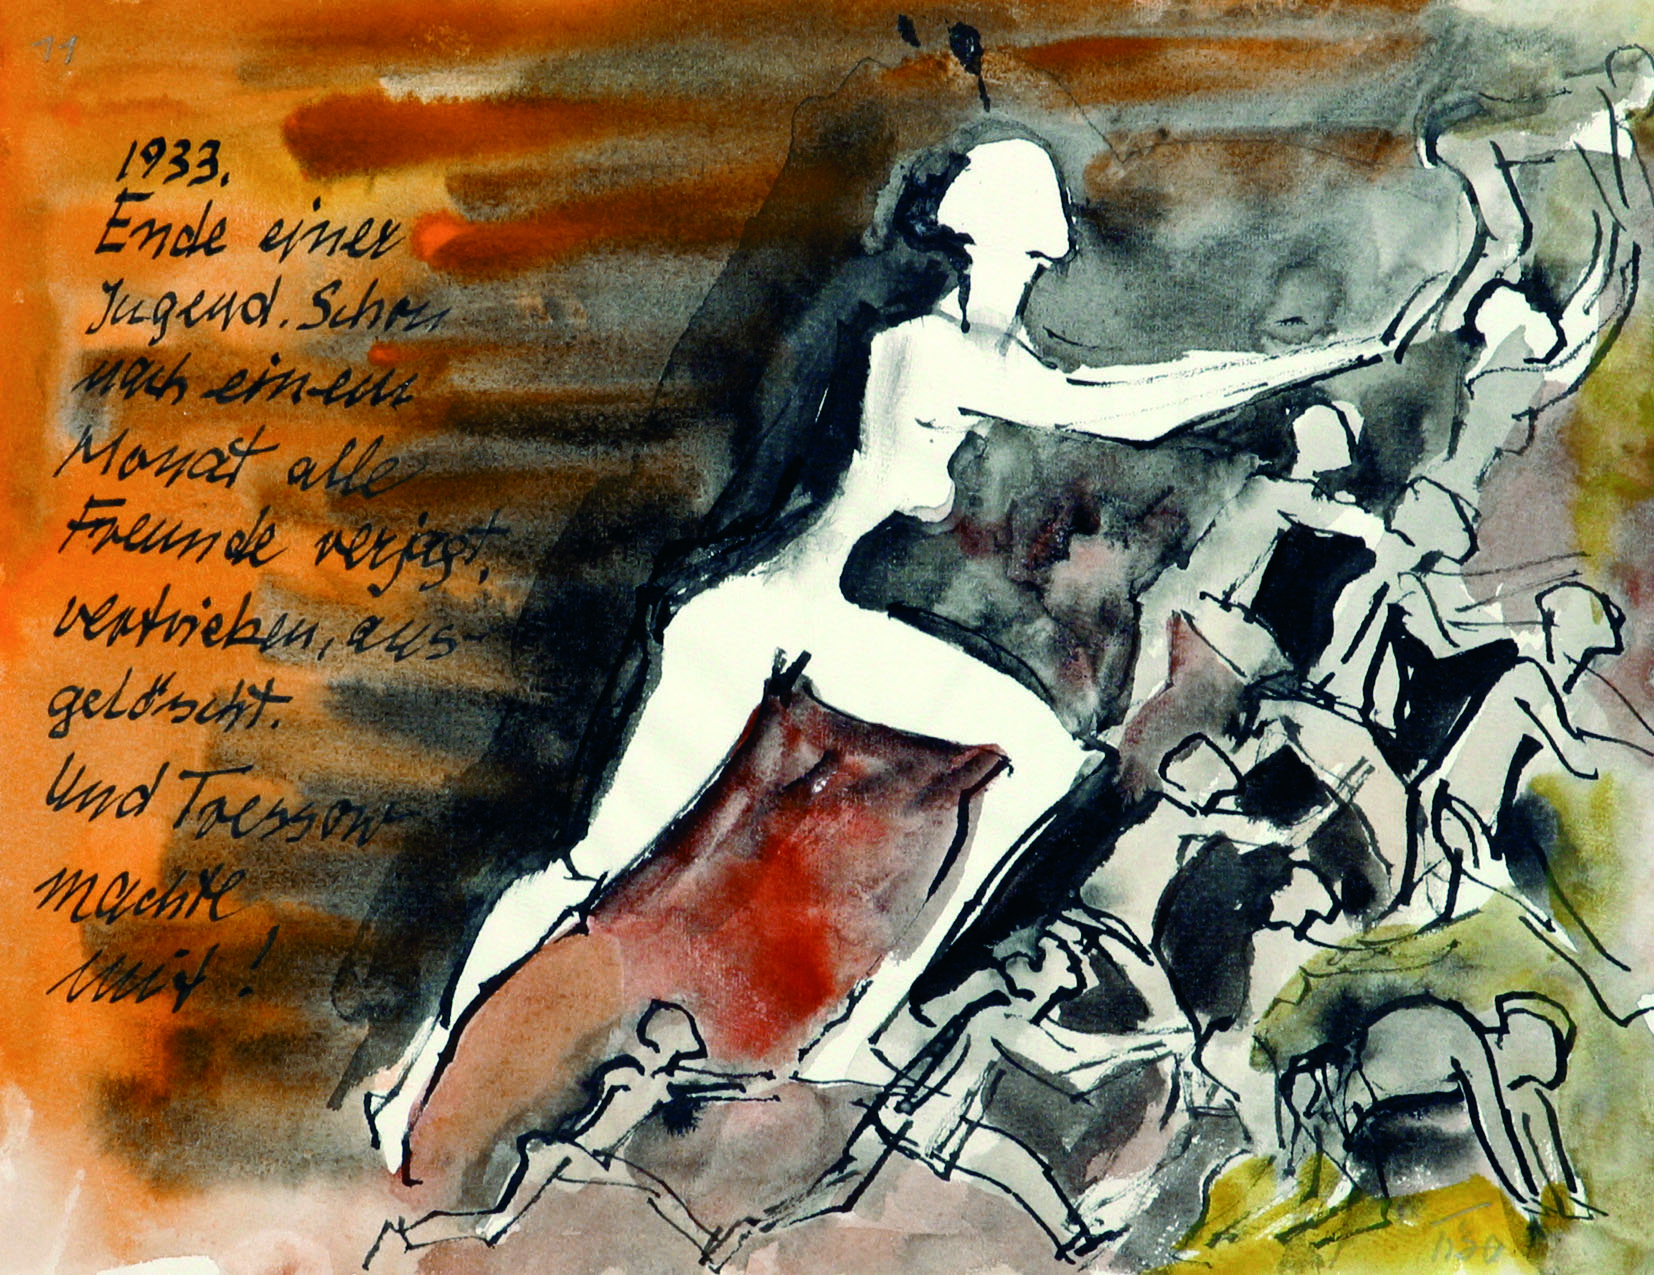 11
1933.
Ende einer
Jugend. Schon
nach einem
Monat alle
Freunde verjagt,
vertrieben, aus-
gelöscht.
Und Tressow
machte
mit!